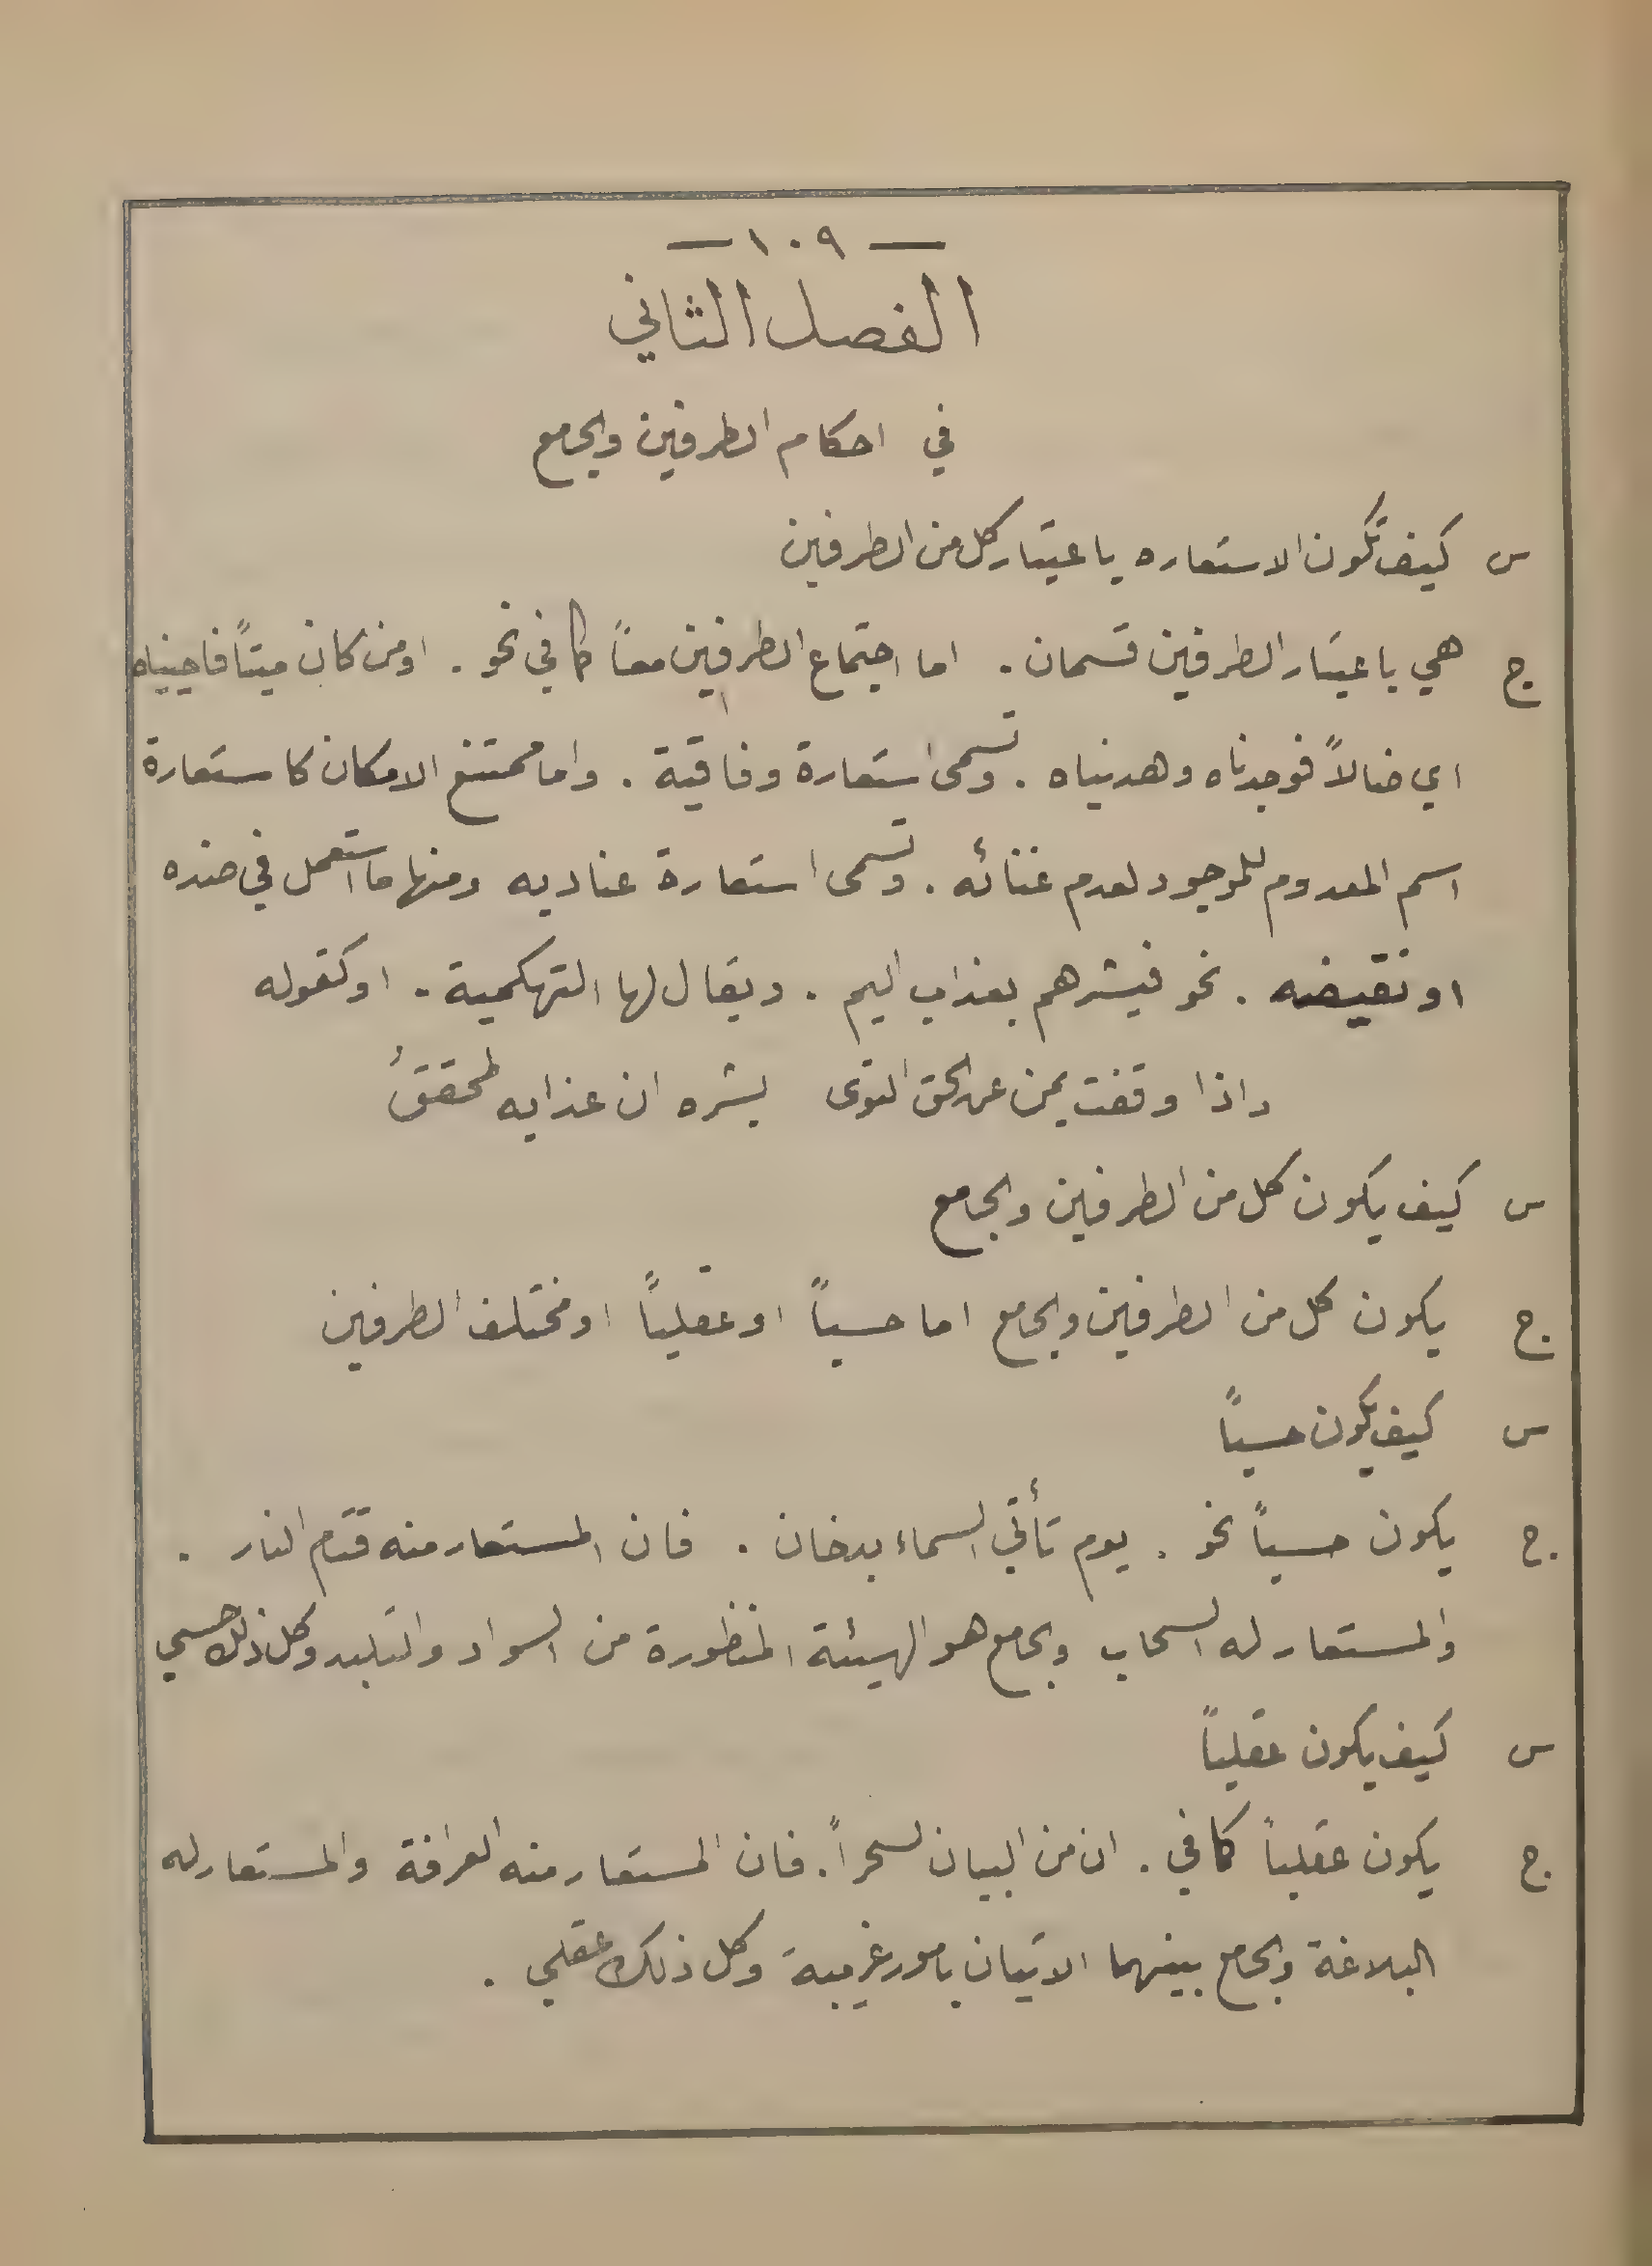 — ١٠٩ —
الفصل الثاني
في احكام الطرفين والجامع
س كيف تكون الاستعاره باعتبار كل من الطرفين
ج هي باعتبار الطرفين قسمان . اما اجتماع الطرفين معاً كما في نحو . اومن كان ميتاً فاحييناه
اي ضالاً فوجدناه وهديناه . وتسمى استعارة وفاقية . واما ممتنع الامكان كاستعارة
اسم المعدوم للموجود لعدم غنائه . وتسمى استعارة عناديه ومنها ما استعمل في ضده
او نقيضه . نحو فبشرهم بعذاب اليم . ويقال لها التهكمية . او كقوله
واذا وقفت بمن عن الحق التوى بشره ان عذابه لمحققُ
س كيف يكون كل من الطرفين والجامع
ج يكون كل من الطرفين والجامع اما حسياً او عقلياً او مختلف الطرفين
س كيف يكون حسياً
ج يكون حسياً نحو . يوم تأتي السماء بدخان . فان المستعار منه قتام النار .
والمستعار له السحاب والجامع هو الهيئة المنظورة من السواد والتلبد وكل ذلك حسي
س كيف يكون عقلياً
ج يكون عقلياً كما في . ان من البيان لسحراً . فان المستعار منه العرافة والمستعار له
البلاغة والجامع بينهما الاتيان بامور غريبة وكل ذلك عقلي .